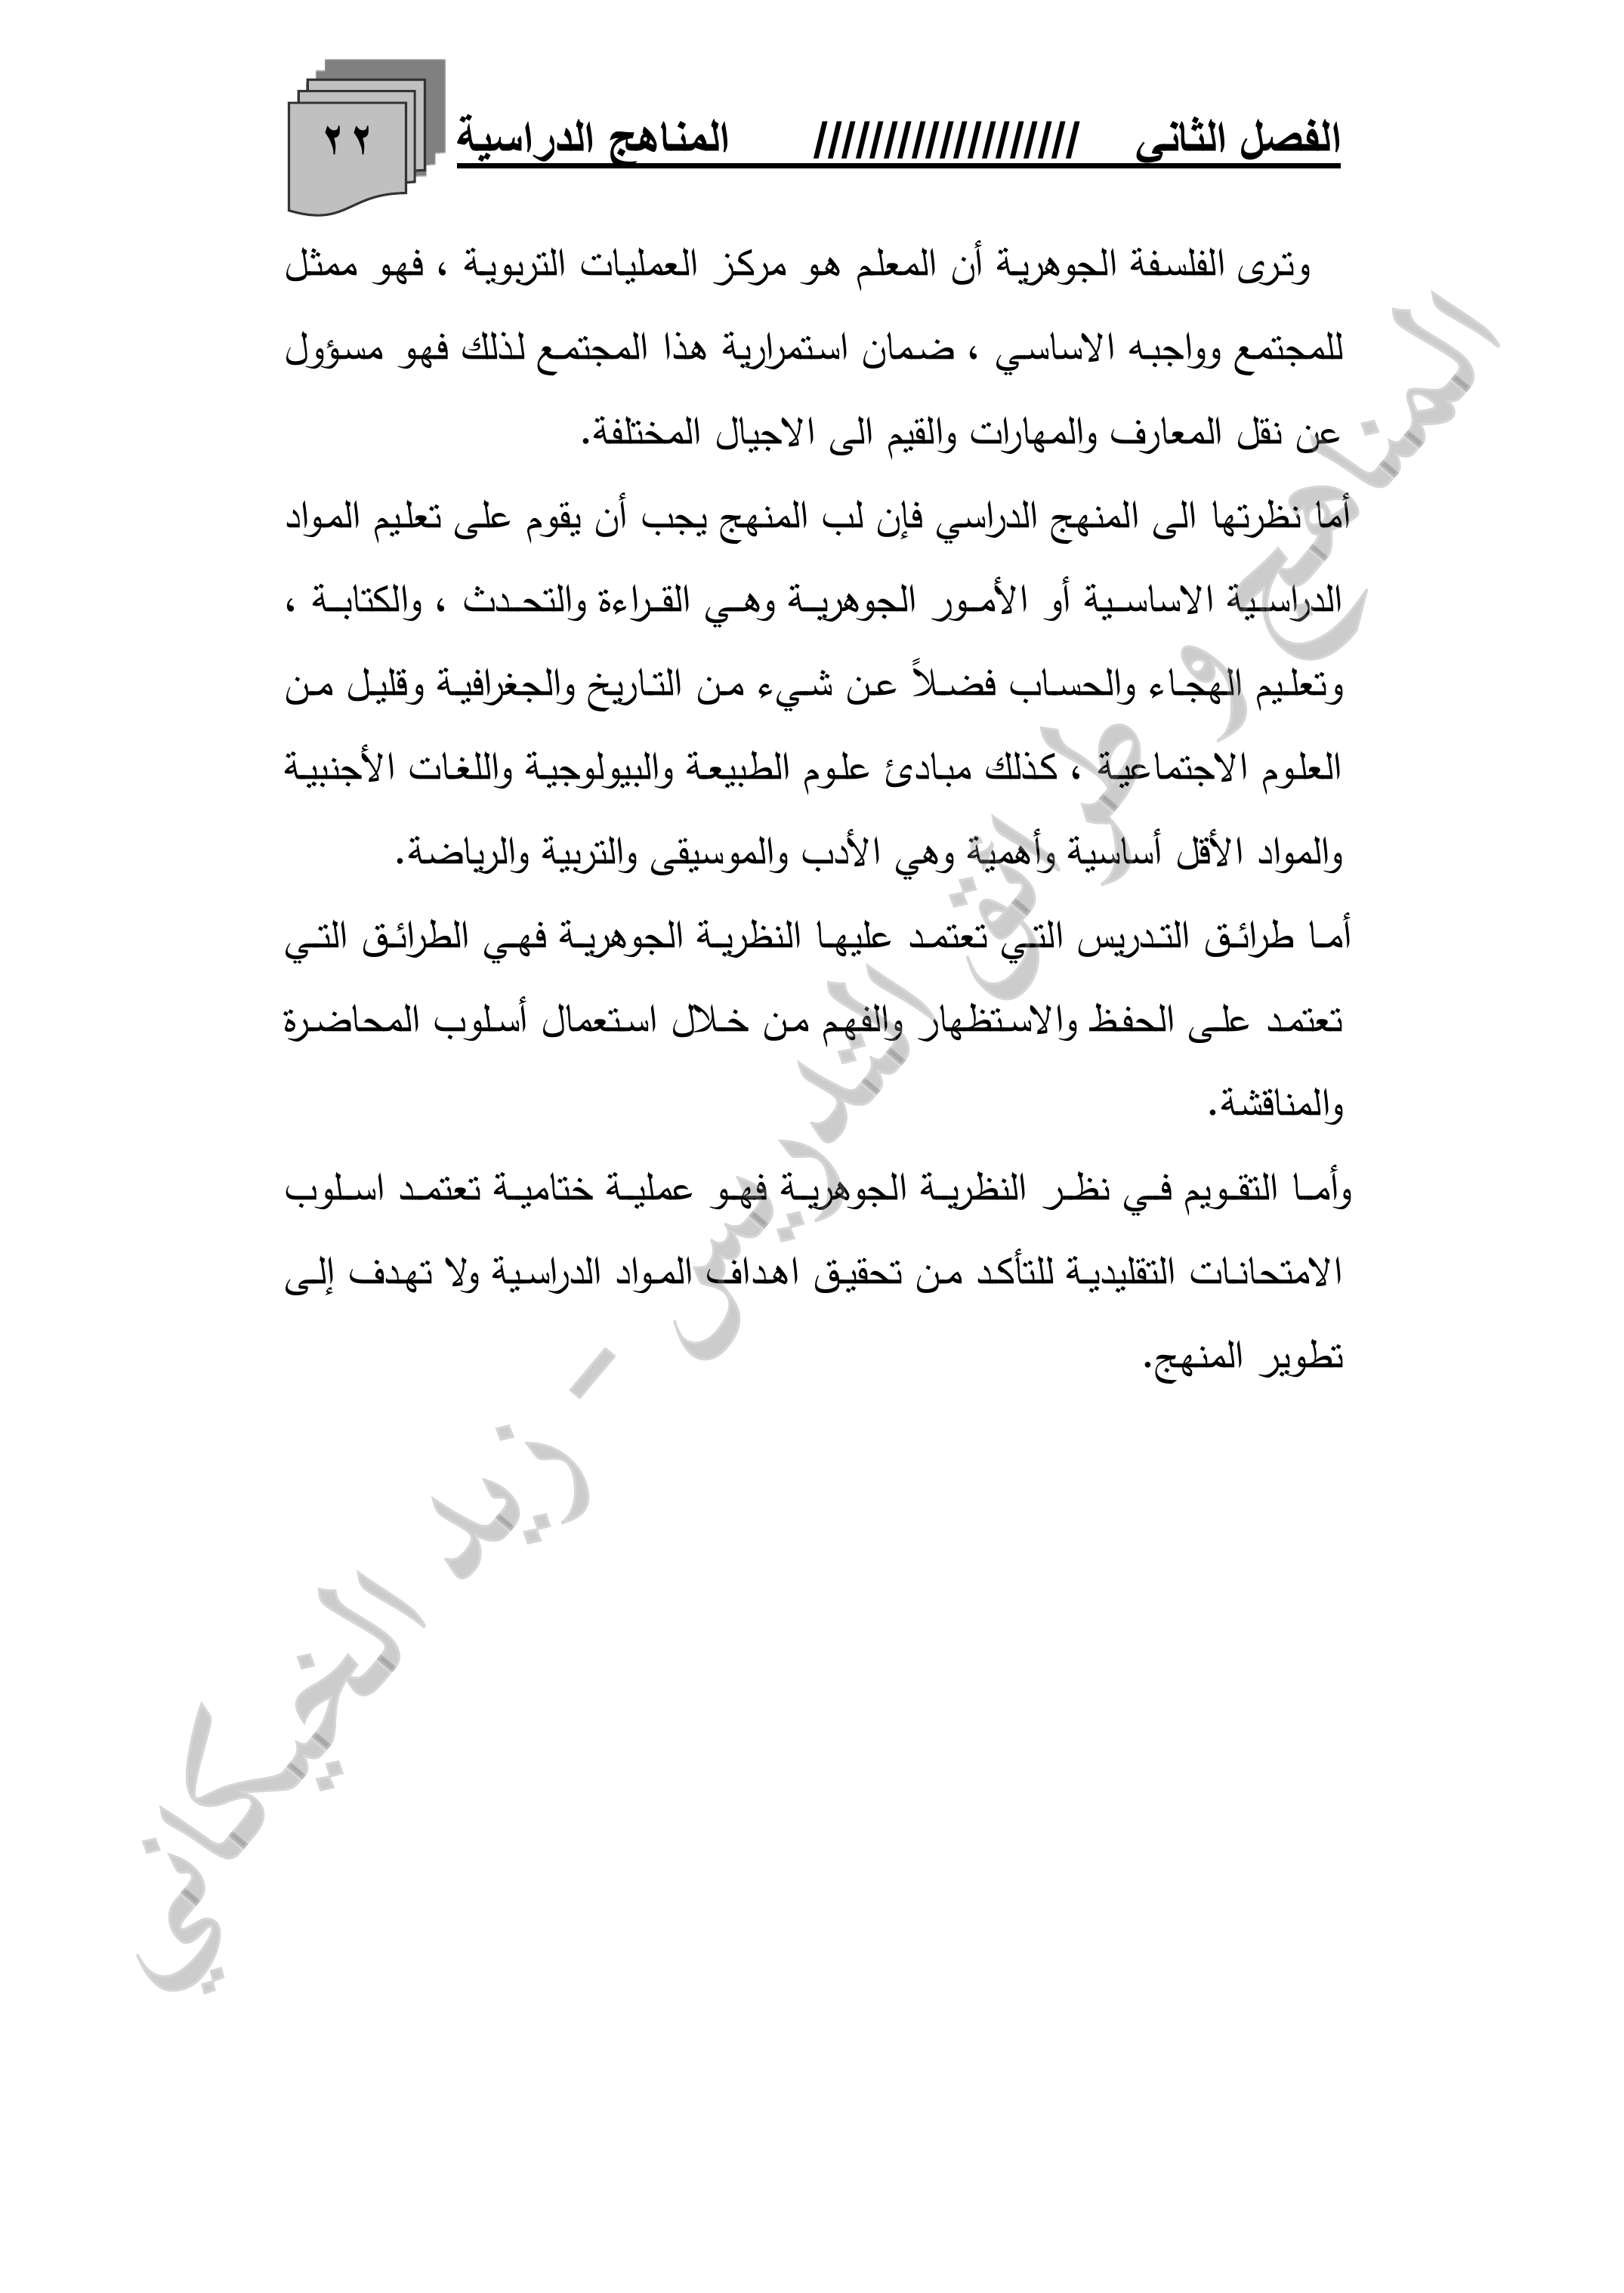 الفصل الثاني /////////////////// المناهج الدراسية ٢٢
وترى الفلسفة الجوهرية أن المعلم هو مركز العمليات التربوية ، فهو ممثل
للمجتمع وواجبه الاساسي ، ضمان استمرارية هذا المجتمع لذلك فهو مسؤول
عن نقل المعارف والمهارات والقيم الى الاجيال المختلفة.
أما نظرتها الى المنهج الدراسي فإن لب المنهج يجب أن يقوم على تعليم المواد
الدراسية الاساسية أو الأمور الجوهرية وهي القراءة والتحدث ، والكتابة ،
وتعليم الهجاء والحساب فضلاً عن شيء من التاريخ والجغرافية وقليل من
العلوم الاجتماعية ، كذلك مبادئ علوم الطبيعة والبيولوجية واللغات الأجنبية
والمواد الأقل أساسية وأهمية وهي الأدب والموسيقى والتربية والرياضة.
أما طرائق التدريس التي تعتمد عليها النظرية الجوهرية فهي الطرائق التي
تعتمد على الحفظ والاستظهار والفهم من خلال استعمال أسلوب المحاضرة
والمناقشة.
وأما التقويم في نظر النظرية الجوهرية فهو عملية ختامية تعتمد اسلوب
الامتحانات التقليدية للتأكد من تحقيق اهداف المواد الدراسية ولا تهدف إلى
تطوير المنهج.
المناهج و طرائق التدريس - زيد الخيكاني